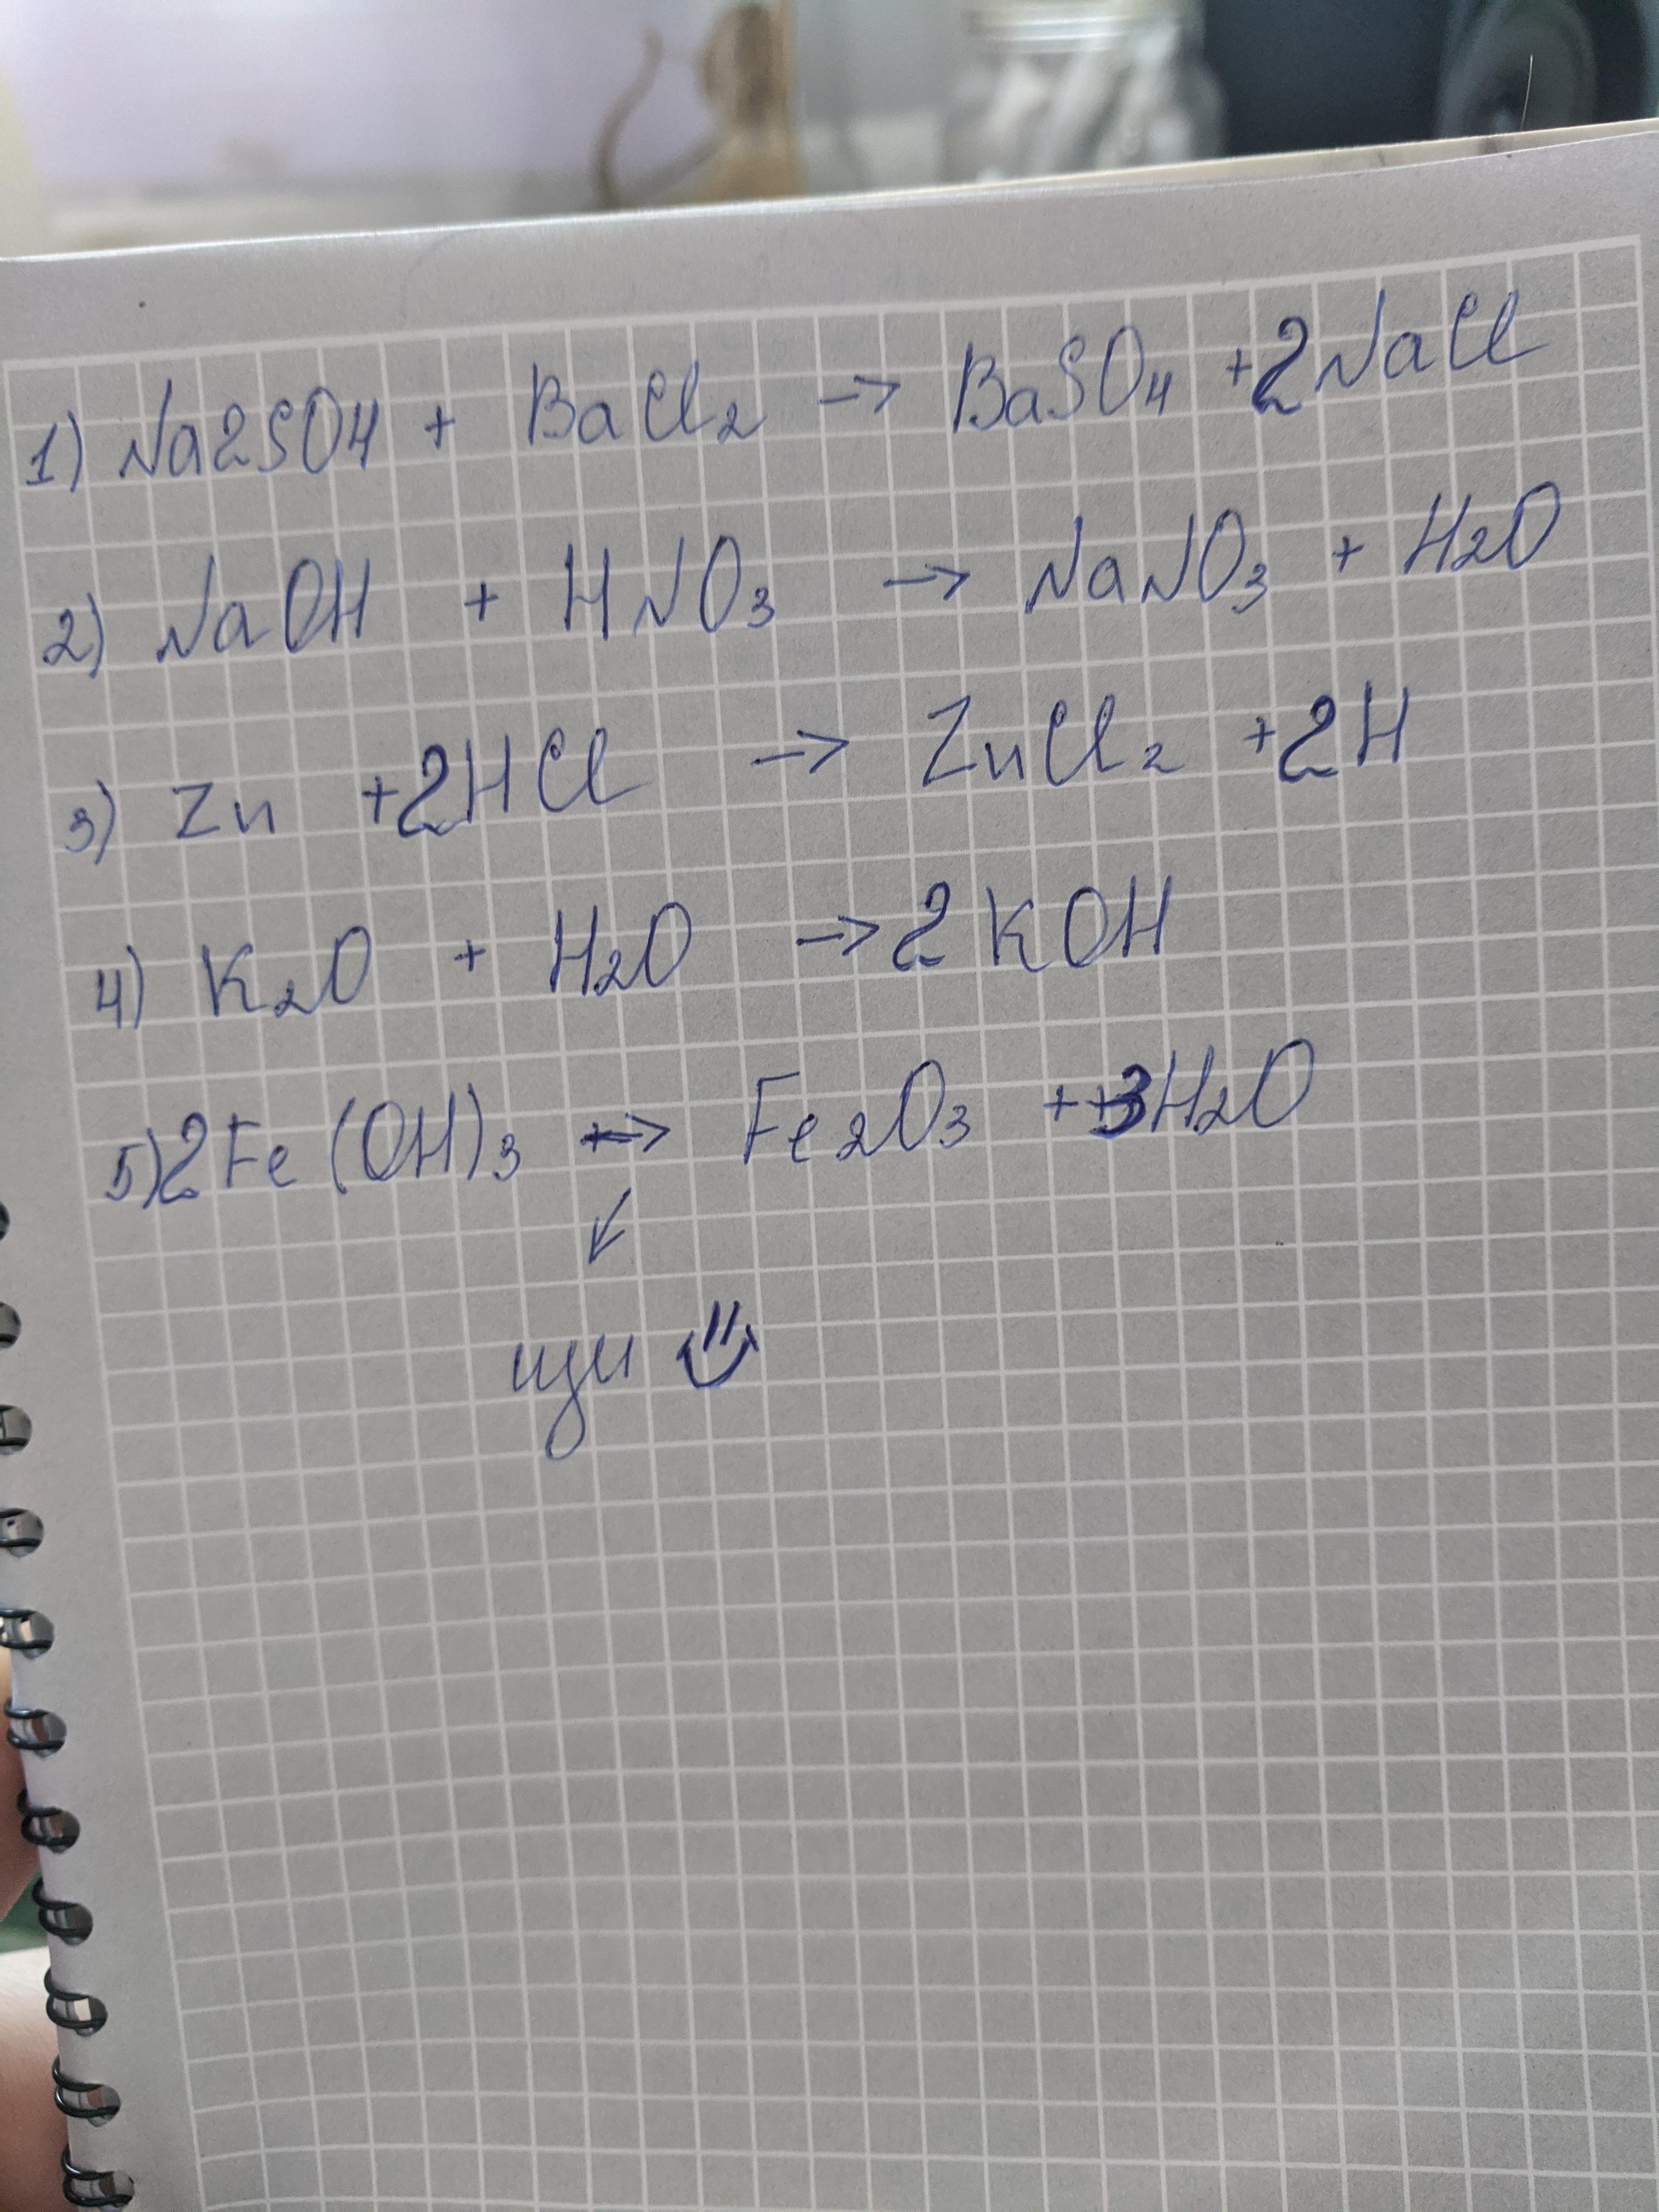 1) Na2SO4 + BaCl₂ → BaSO₄ + 2NaCl
2) NaOH + HNO₃ → NaNO₃ + H₂O
3) Zn + 2HCl → ZnCl₂ + 2H
4) K₂O + H₂O → 2KOH
5) 2Fe(OH)₃ → Fe₂O₃ + 3H₂O
↙